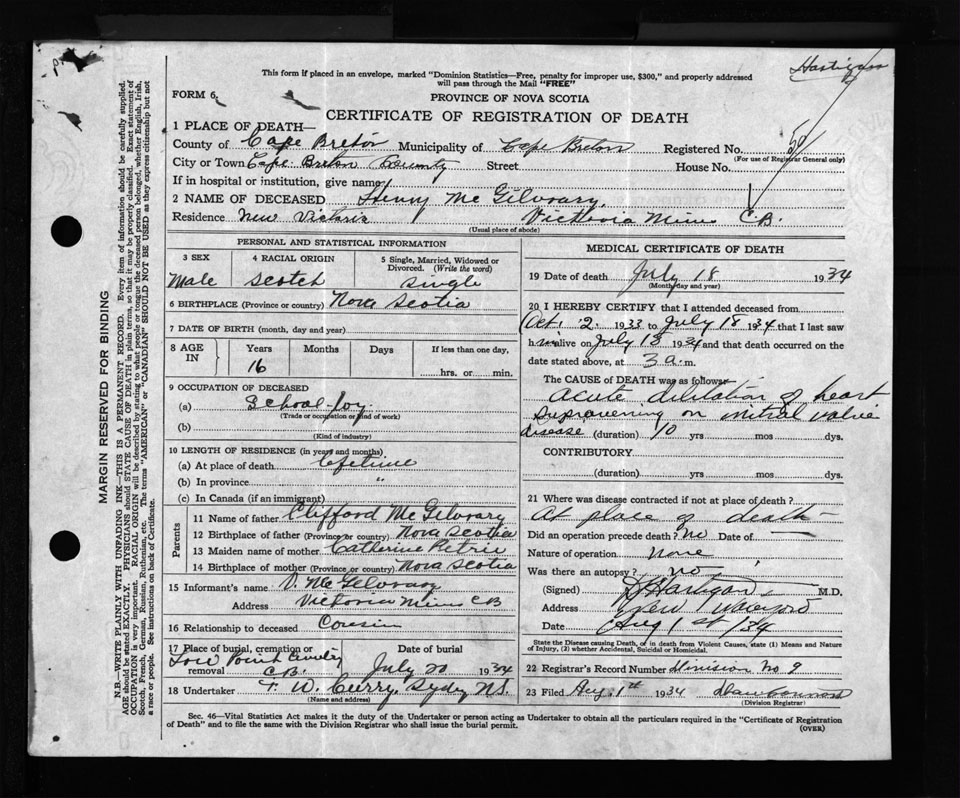 Hartigan
This form if placed in an envelope, marked "Dominion Statistics—Free, penalty for improper use, $300," and properly addressed
will pass through the Mail "FREE"
FORM 6.
PROVINCE OF NOVA SCOTIA
CERTIFICATE OF REGISTRATION OF DEATH
1 PLACE OF DEATH—
County of Cape Breton Municipality of Cape Breton Registered No.
(For use of Registrar General only)
City or Town Cape Breton County Street House No.
If in hospital or institution, give name
2 NAME OF DECEASED Henry Mc Gilvrary.
Residence New Victoria Victoria Mines C.B.
(Usual place of abode)
PERSONAL AND STATISTICAL INFORMATION
3 SEX 4 RACIAL ORIGIN 5 Single, Married, Widowed or
Divorced. (Write the word)
Male Scotch Single
6 BIRTHPLACE (Province or country) Nova Scotia
7 DATE OF BIRTH (month, day and year)
8 AGE IN Years Months Days If less than one day,
16 hrs. or min.
9 OCCUPATION OF DECEASED
(a) School-boy
(Trade or occupation or kind of work)
(b)
(Kind of industry)
10 LENGTH OF RESIDENCE (in years and months)
(a) At place of death lifetime
(b) In province "
(c) In Canada (if an immigrant)
Parents
11 Name of father Clifford Mc Gilvrary
12 Birthplace of father (Province or country) Nova Scotia
13 Maiden name of mother Catherine Petrie
14 Birthplace of mother (Province or country) Nova Scotia
15 Informant's name D. McGilvrary
Address Victoria Mines CB
16 Relationship to deceased Cousin
17 Place of burial, cremation or removal Date of burial
Low Point Cemetery C.B. July 20 1934
18 Undertaker F. W. Curry, Sydney N.S.
(Name and address)
MEDICAL CERTIFICATE OF DEATH
19 Date of death July 18 1934
(Month, day and year)
20 I HEREBY CERTIFY that I attended deceased from
Oct. 2. 1933 to July 18 1934 that I last saw
him alive on July 13 1934 and that death occurred on the
date stated above, at 3 a. m.
The CAUSE OF DEATH was as follows:
Acute dilitation of heart
supravening on mitral valve
disease (duration) 10 yrs mos dys.
CONTRIBUTORY
(duration) yrs mos dys.
21 Where was disease contracted if not at place of death?
At place of death—
Did an operation precede death? No Date of —
Nature of operation none
Was there an autopsy? no
(Signed) Hartigan M.D.
Address New Waterford
Date Aug 1st /34
State the Disease causing Death, or in death from Violent Causes, state (1) Means and Nature
of Injury, (2) whether Accidental, Suicidal or Homicidal.
22 Registrar's Record Number Division No 9
23 Filed Aug. 1st 1934
(Division Registrar)
Sec. 46—Vital Statistics Act makes it the duty of the Undertaker or person acting as Undertaker to obtain all the particulars required in the "Certificate of Registration
of Death" and to file the same with the Division Registrar who shall issue the burial permit.
(OVER)
MARGIN RESERVED FOR BINDING
N.B.—WRITE PLAINLY WITH UNFADING INK—THIS IS A PERMANENT RECORD. Every item of information should be carefully supplied.
AGE should be stated EXACTLY. PHYSICIANS should STATE CAUSE OF DEATH in plain terms, so that it may be properly classified. Exact statement of
OCCUPATION is very important. RACIAL ORIGIN will be described by stating to what people or tongue the deceased person belonged, whether English, Irish,
Scotch, French, German, Russian, Ruthenian, etc. The terms "AMERICAN" or "CANADIAN" SHOULD NOT BE USED as they express citizenship but not
a race or people. See instructions on back of Certificate.